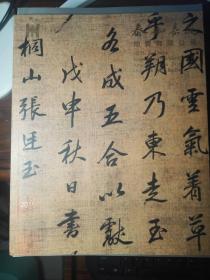 之國雲氣著草
乎朔乃東走玉
各成五合以獻
戊申秋日書
桐山張廷玉